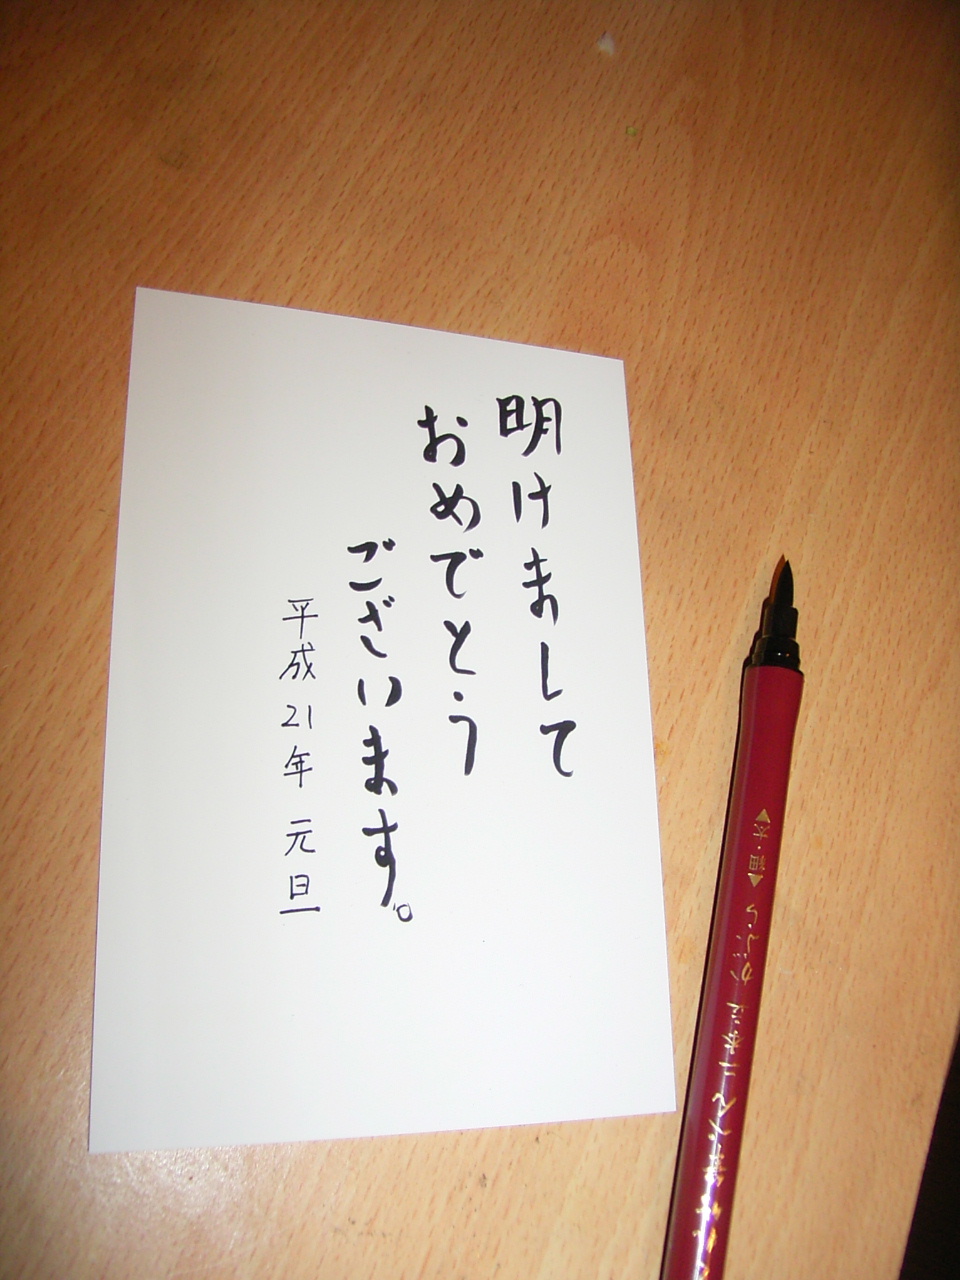 明けまして
おめでとう
ございます。
平成21年 元旦
細・太